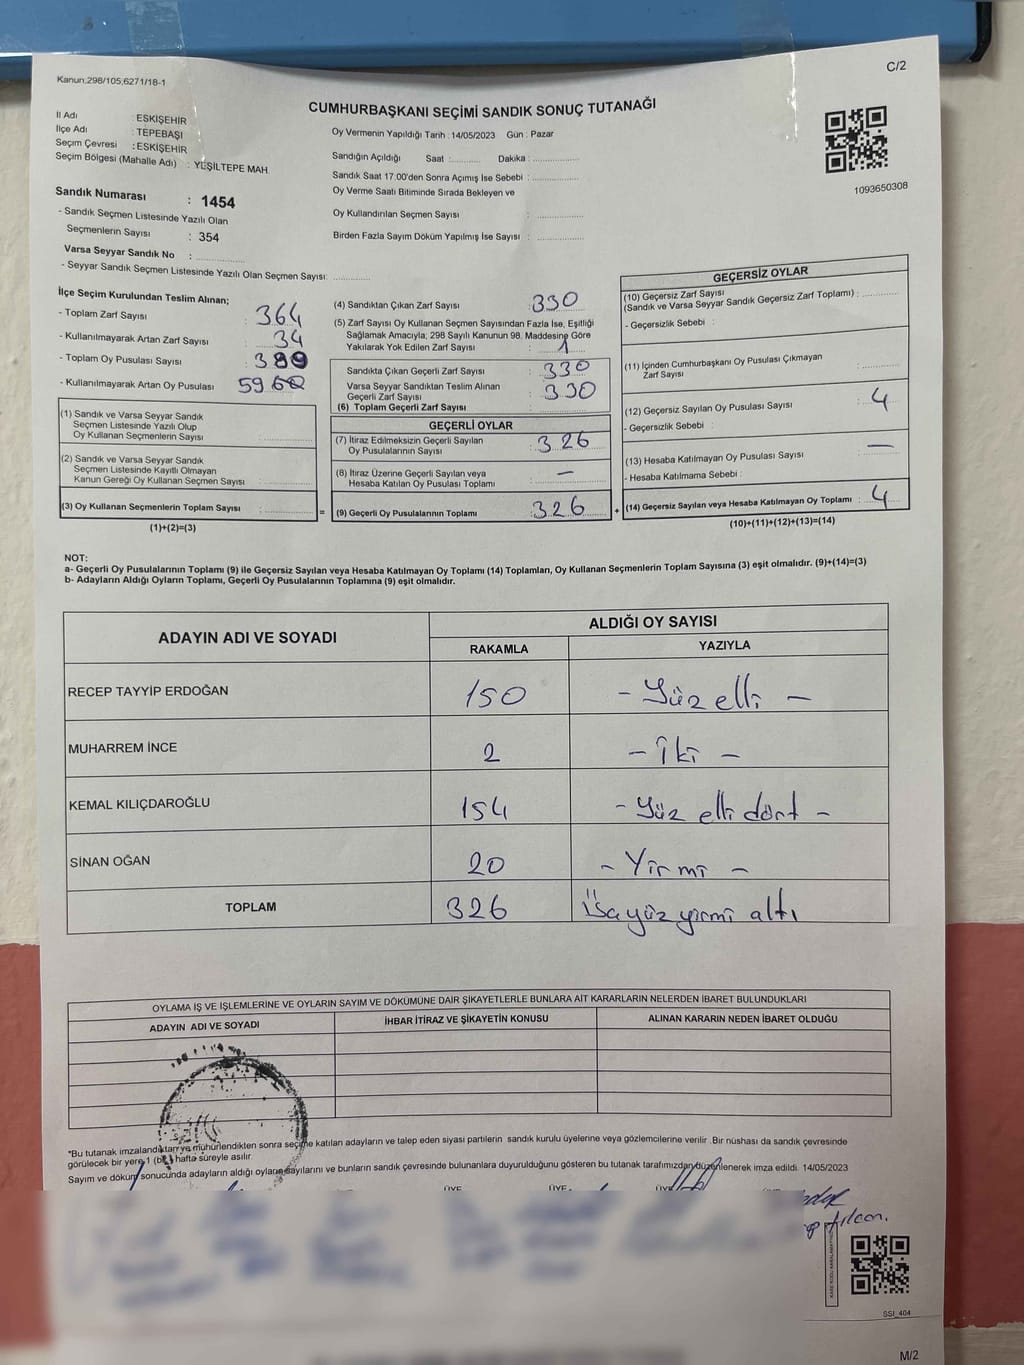 C/2
Kanun,298/105,6271/18-1
CUMHURBAŞKANI SEÇİMİ SANDIK SONUÇ TUTANAĞI
İl Adı : ESKİŞEHİR
İlçe Adı : TEPEBAŞI
Seçim Çevresi : ESKİŞEHİR
Seçim Bölgesi (Mahalle Adı) : YEŞİLTEPE MAH.
Sandık Numarası : 1454
- Sandık Seçmen Listesinde Yazılı Olan
Seçmenlerin Sayısı : 354
Varsa Seyyar Sandık No :
- Seyyar Sandık Seçmen Listesinde Yazılı Olan Seçmen Sayısı:
Oy Vermenin Yapıldığı Tarih : 14/05/2023 Gün : Pazar
Sandığın Açıldığı Saat : Dakika :
Sandık Saat 17:00'den Sonra Açımış İse Sebebi :
Oy Verme Saati Bitiminde Sırada Bekleyen ve
Oy Kullandırılan Seçmen Sayısı :
Birden Fazla Sayım Döküm Yapılmış İse Sayısı :
1093650308
İlçe Seçim Kurulundan Teslim Alınan;
- Toplam Zarf Sayısı : 364
- Kullanılmayarak Artan Zarf Sayısı : 34
- Toplam Oy Pusulası Sayısı : 389
- Kullanılmayarak Artan Oy Pusulası : 59
(1) Sandık ve Varsa Seyyar Sandık
Seçmen Listesinde Yazılı Olup
Oy Kullanan Seçmenlerin Sayısı :
(2) Sandık ve Varsa Seyyar Sandık
Seçmen Listesinde Kayıtlı Olmayan
Kanun Gereği Oy Kullanan Seçmen Sayısı :
(3) Oy Kullanan Seçmenlerin Toplam Sayısı :
(1)+(2)=(3)
(4) Sandıktan Çıkan Zarf Sayısı : 330
(5) Zarf Sayısı Oy Kullanan Seçmen Sayısından Fazla İse, Eşitliği
Sağlamak Amacıyla; 298 Sayılı Kanunun 98. Maddesine Göre
Yakılarak Yok Edilen Zarf Sayısı : 1
Sandıkta Çıkan Geçerli Zarf Sayısı : 330
Varsa Seyyar Sandıktan Teslim Alınan
Geçerli Zarf Sayısı : 330
(6) Toplam Geçerli Zarf Sayısı
GEÇERLİ OYLAR
(7) İtiraz Edilmeksizin Geçerli Sayılan
Oy Pusulalarının Sayısı : 326
(8) İtiraz Üzerine Geçerli Sayılan veya
Hesaba Katılan Oy Pusulası Toplamı : —
= (9) Geçerli Oy Pusulalarının Toplamı : 326
GEÇERSİZ OYLAR
(10) Geçersiz Zarf Sayısı
(Sandık ve Varsa Seyyar Sandık Geçersiz Zarf Toplamı) :
- Geçersizlik Sebebi :
(11) İçinden Cumhurbaşkanı Oy Pusulası Çıkmayan
Zarf Sayısı :
(12) Geçersiz Sayılan Oy Pusulası Sayısı : 4
- Geçersizlik Sebebi :
(13) Hesaba Katılmayan Oy Pusulası Sayısı : —
- Hesaba Katılmama Sebebi :
+ (14) Geçersiz Sayılan veya Hesaba Katılmayan Oy Toplamı : 4
(10)+(11)+(12)+(13)=(14)
NOT:
a- Geçerli Oy Pusulalarının Toplamı (9) ile Geçersiz Sayılan veya Hesaba Katılmayan Oy Toplamı (14) Toplamları, Oy Kullanan Seçmenlerin Toplam Sayısına (3) eşit olmalıdır. (9)+(14)=(3)
b- Adayların Aldığı Oyların Toplamı, Geçerli Oy Pusulalarının Toplamına (9) eşit olmalıdır.
ADAYIN ADI VE SOYADI ALDIĞI OY SAYISI
RAKAMLA YAZIYLA
RECEP TAYYİP ERDOĞAN 150 - Yüz elli -
MUHARREM İNCE 2 - İki -
KEMAL KILIÇDAROĞLU 154 - Yüz elli dört -
SİNAN OĞAN 20 - Yirmi -
TOPLAM 326 Üçyüz yirmi altı
OYLAMA İŞ VE İŞLEMLERİNE VE OYLARIN SAYIM VE DÖKÜMÜNE DAİR ŞİKAYETLERLE BUNLARA AİT KARARLARIN NELERDEN İBARET BULUNDUKLARI
ADAYIN ADI VE SOYADI İHBAR İTİRAZ VE ŞİKAYETİN KONUSU ALINAN KARARIN NEDEN İBARET OLDUĞU
*Bu tutanak imzalandıktan ve mühürlendikten sonra seçime katılan adayların ve talep eden siyasi partilerin sandık kurulu üyelerine veya gözlemcilerine verilir. Bir nüshası da sandık çevresinde
görülecek bir yere 1 (bir) hafta süreyle asılır.
Sayım ve döküm sonucunda adayların aldığı oyların sayılarını ve bunların sandık çevresinde bulunanlara duyurulduğunu gösteren bu tutanak tarafımızdan düzenlenerek imza edildi. 14/05/2023
ÜYE ÜYE ÜYE
SSI_404
M/2